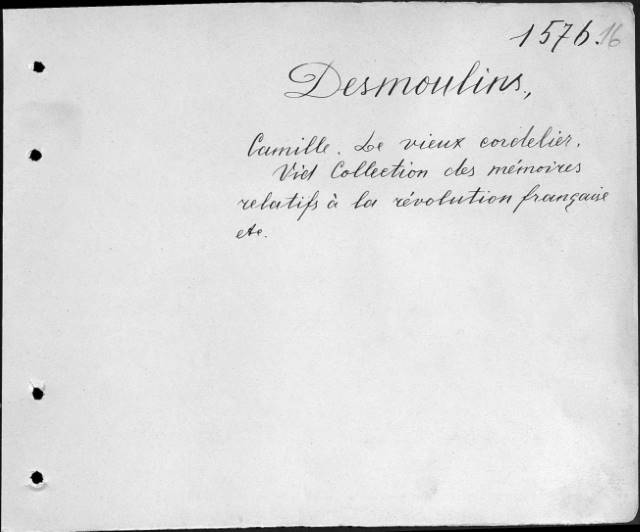 1576.16
Desmoulins,
Camille. Le vieux cordelier.
Vid Collection des mémoires
relatifs à la révolution française
etc.